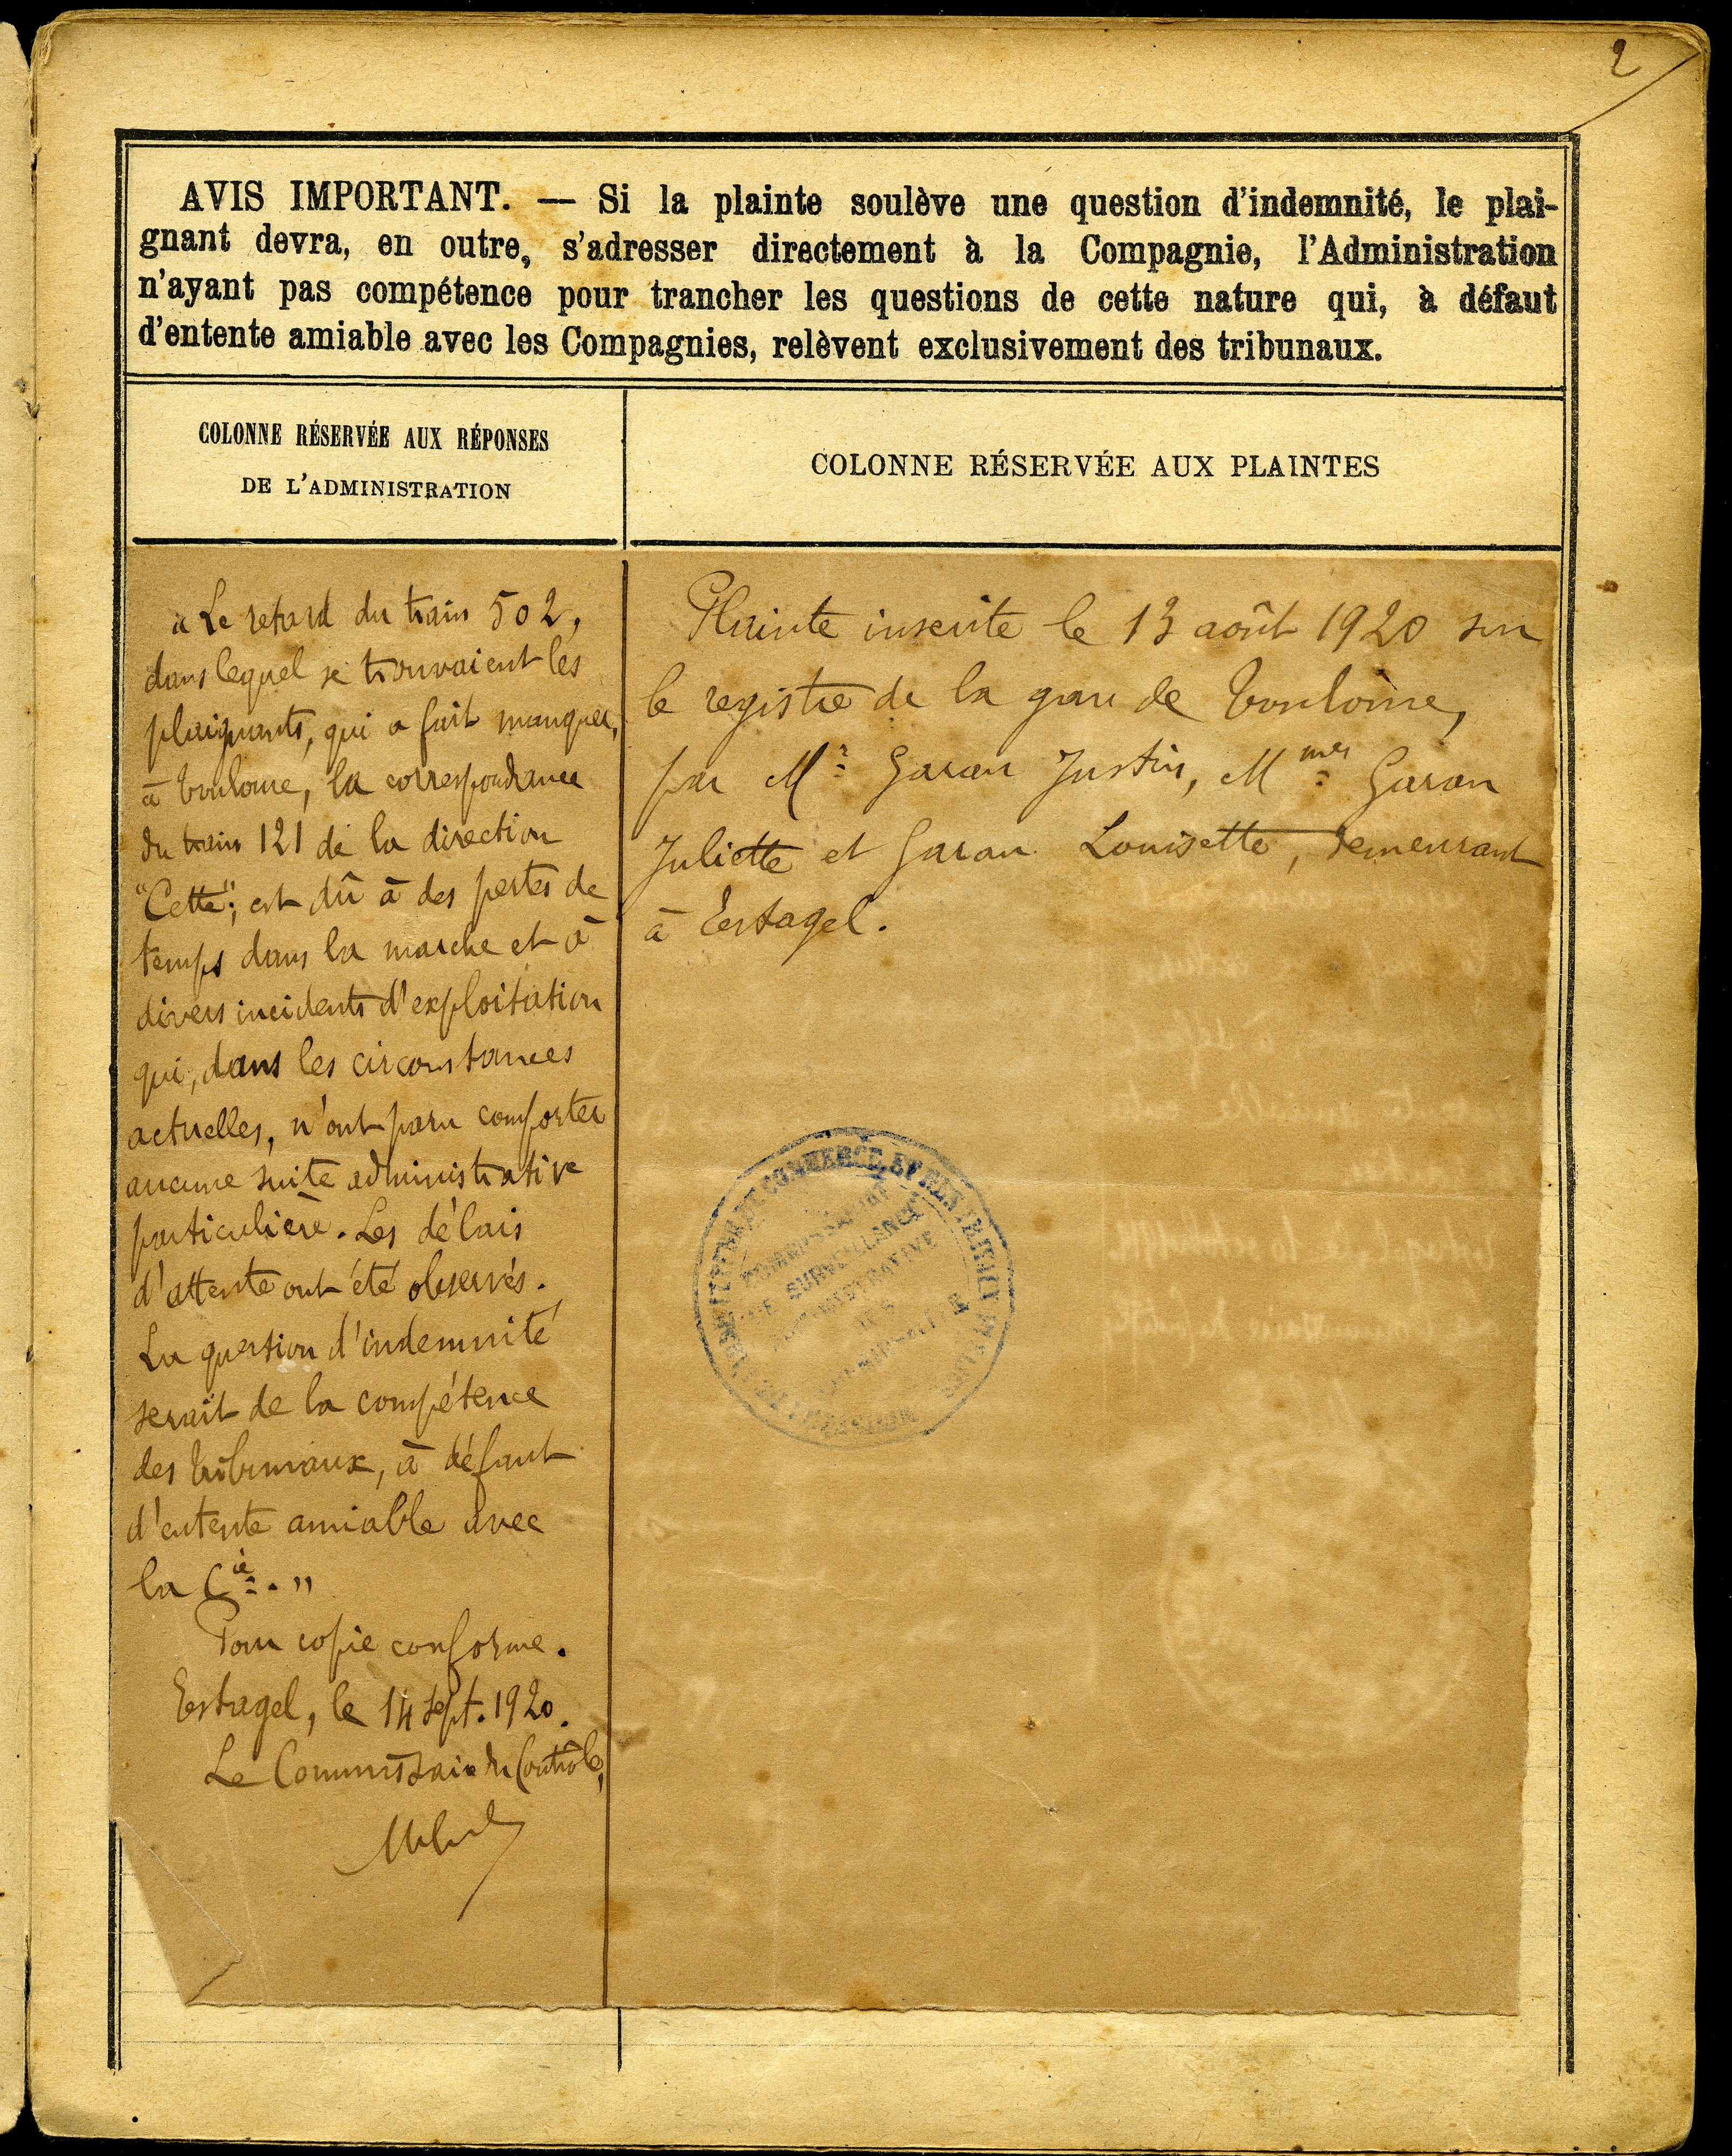 2
AVIS IMPORTANT. — Si la plainte soulève une question d'indemnité, le plai-
gnant devra, en outre, s'adresser directement à la Compagnie, l'Administration
n'ayant pas compétence pour trancher les questions de cette nature qui, à défaut
d'entente amiable avec les Compagnies, relèvent exclusivement des tribunaux.
COLONNE RÉSERVÉE AUX RÉPONSES
DE L'ADMINISTRATION
« Le retard du train 502,
dans lequel se trouvaient les
plaignants, qui a fait manquer,
à Toulouse, la correspondance
du train 121 de la direction
"Cette", est dû à des pertes de
temps dans la marche et à
divers incidents d'exploitation
qui, dans les circonstances
actuelles, n'ont paru comporter
aucune suite administrative
particulière. Les délais
d'attente ont été observés.
La question d'indemnité
serait de la compétence
des tribunaux, à défaut
d'entente amiable avec
la Cie. »
Pour copie conforme.
Estagel, le 14 sept. 1920.
Le Commissaire du Contrôle,
COLONNE RÉSERVÉE AUX PLAINTES
Plainte inscrite le 13 août 1920 sur
le registre de la gare de Toulouse,
par Mr. Garau Justin, Mmes Garau
Juliette et Garau Louisette, demeurant
à Estagel.
COMMERCE, ET DES
COMMISSARIAT
DE SURVEILLANCE
ADMINISTRATIVE
DES